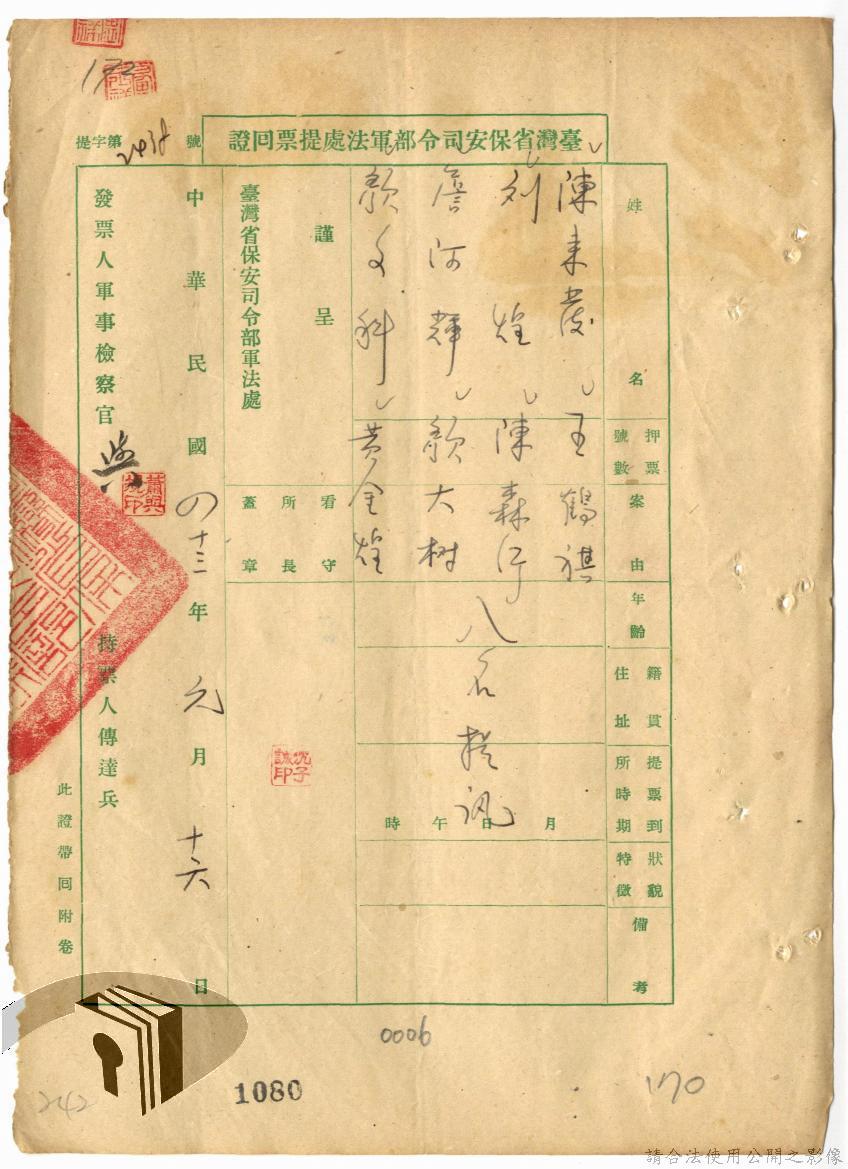 172
臺灣省保安司令部軍法處提票回證
提字第2438號
姓名
押票號數
案由
年齡
籍貫住址
提票到所時期
狀貌特徵
備考
陳來發 王鶴祺
刘 煌 陳森源
詹河輝 顏大树
顏文科 黃金煌
八名提訊
月 日 午 時
謹呈
臺灣省保安司令部軍法處
看守所長蓋章
沉子誠印
中華民國四十三年元月十六日
發票人軍事檢察官
持票人傳達兵
此證帶回附卷
0006
242
1080
170
請合法使用公開之影像